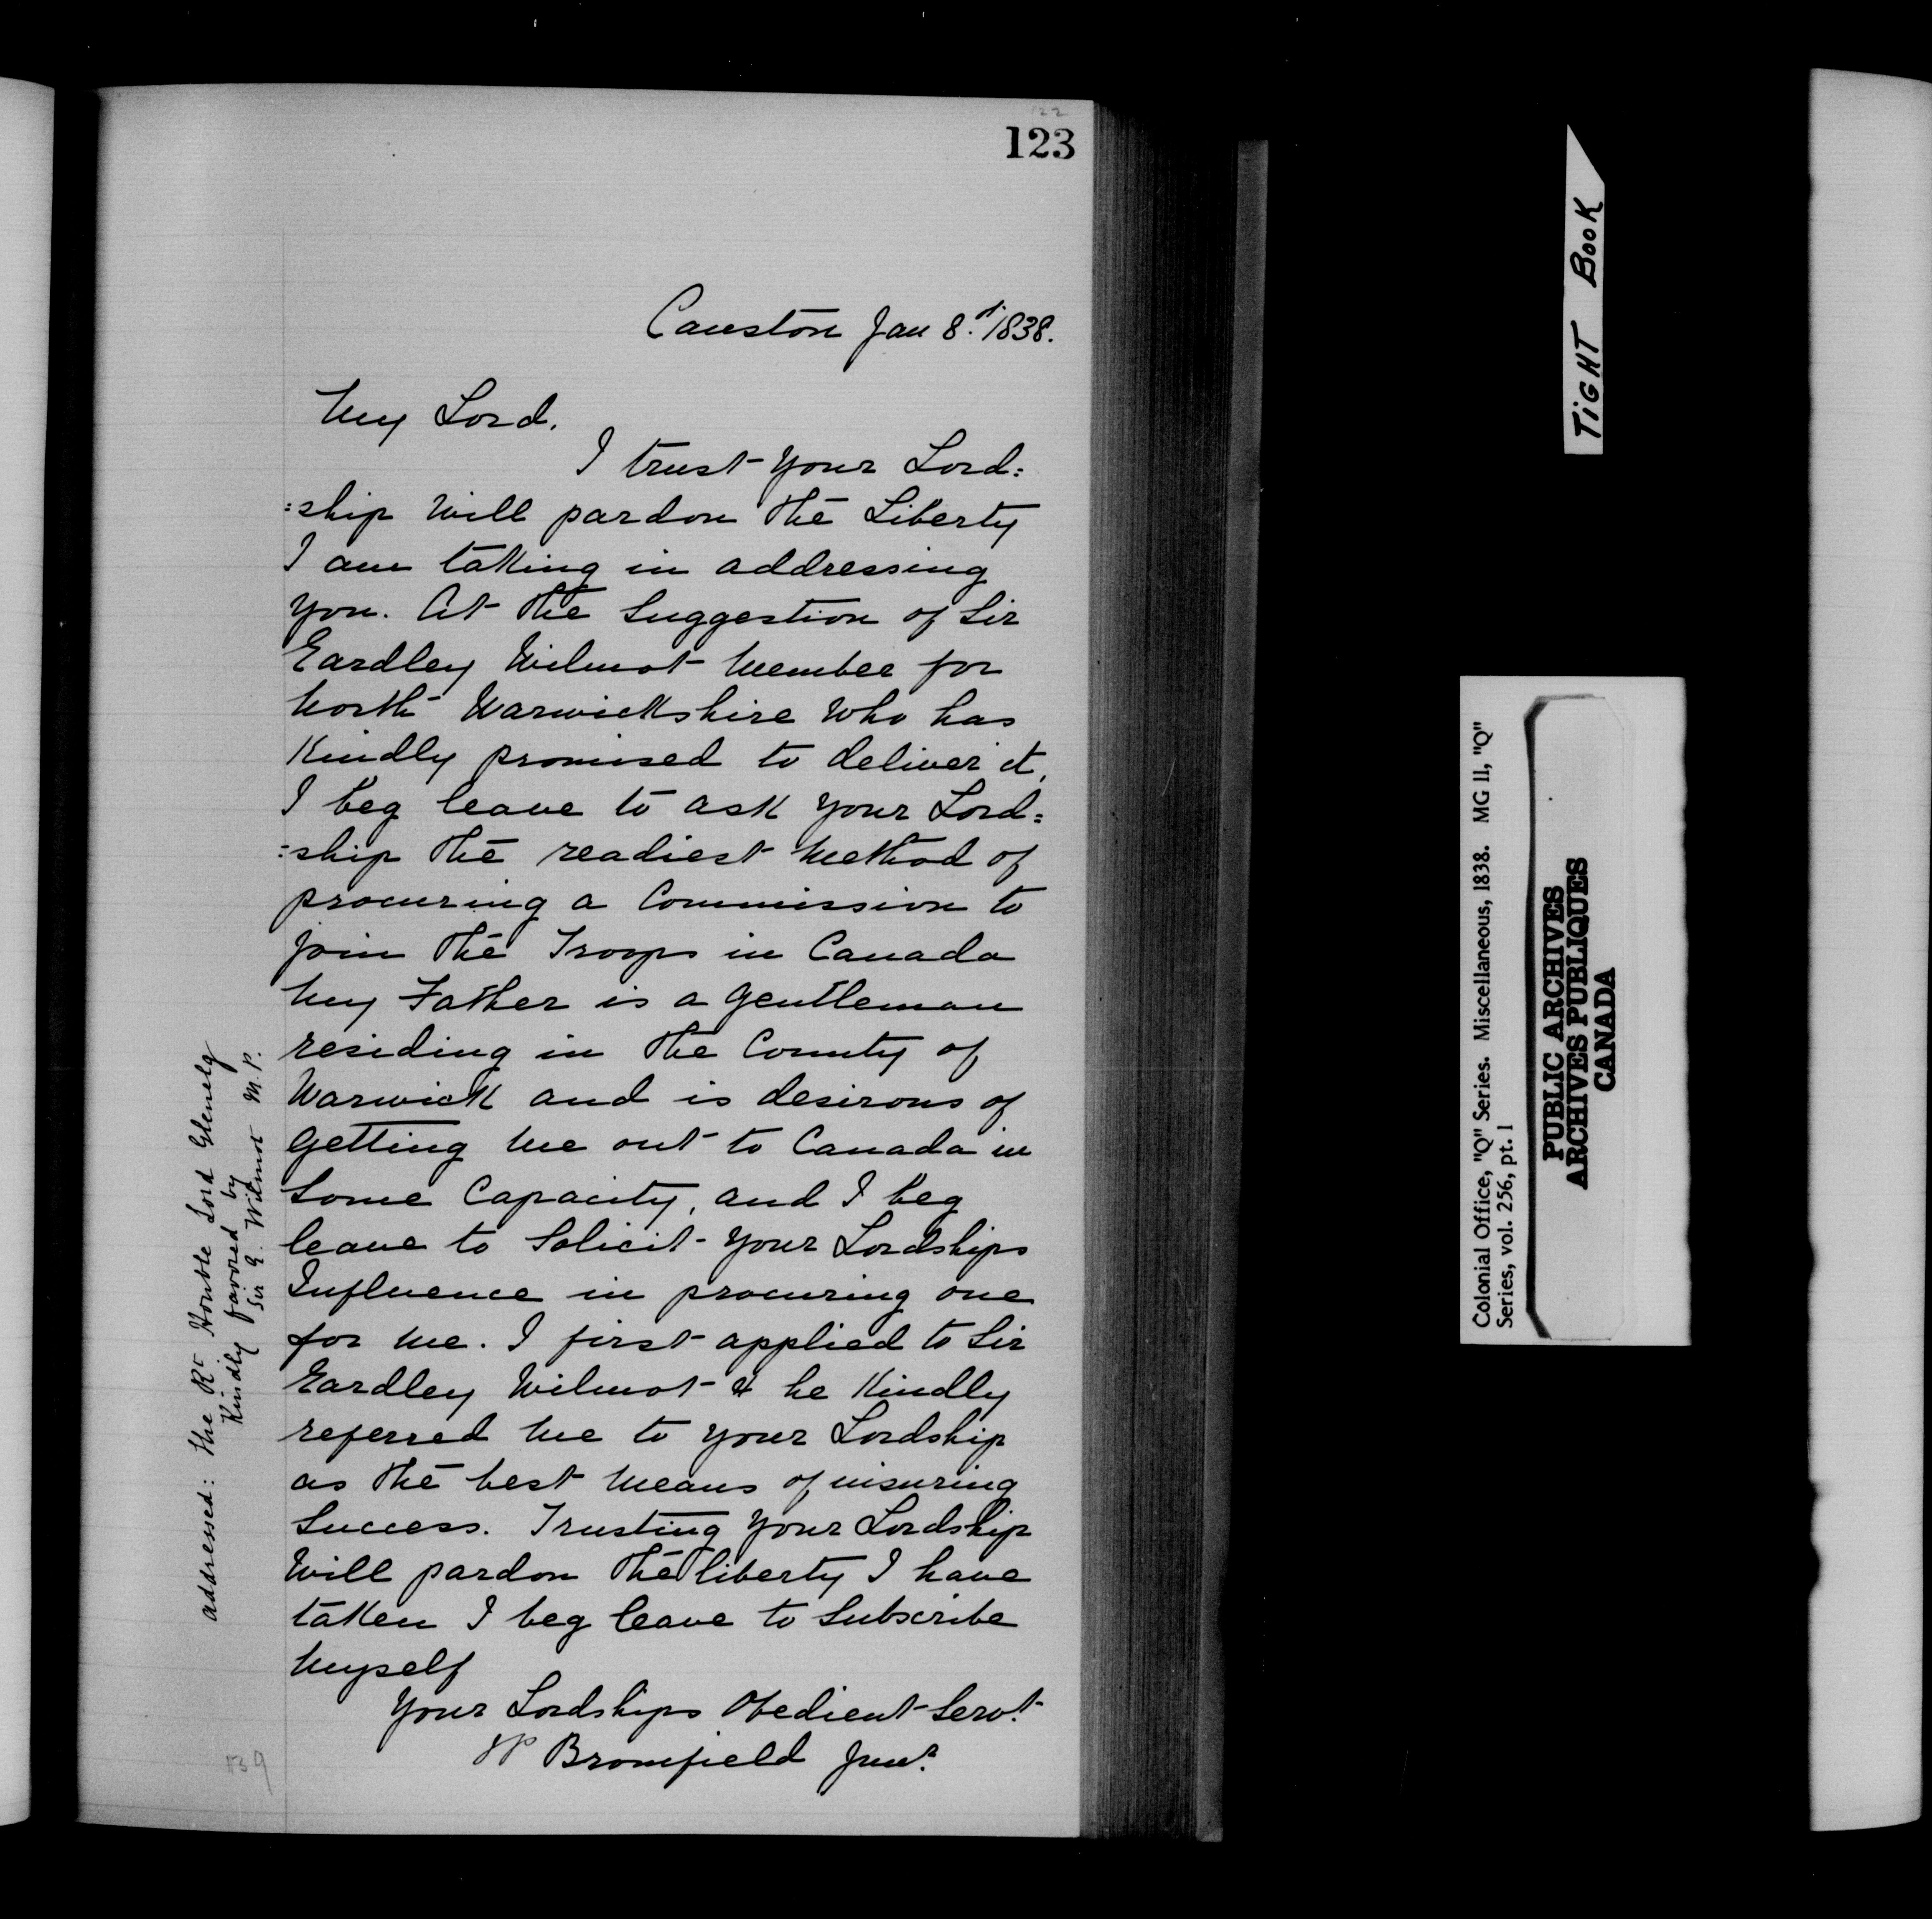 122
123
Cawston Jan 8.th 1838.
My Lord.
I trust your Lord:
:ship will pardon the Liberty
I am taking in addressing
you. At the Suggestion of Sir
Eardley Wilmot Member for
North Warwickshire who has
Kindly promised to deliver it,
I beg leave to ask your Lord:
:ship the readiest method of
procuring a Commission to
join the Troops in Canada
My Father is a gentleman
residing in the County of
Warwick and is desirous of
getting me out to Canada in
Some Capacity, and I beg
leave to Solicit your Lordships
Influence in procuring one
for me. I first applied to Sir
Eardley Wilmot & he Kindly
referred me to your Lordship
as the best means of insuring
Success. Trusting your Lordship
Will pardon the liberty I have
taken I beg leave to Subscribe
Myself
Your Lordships Obedient Servt.
W Bromfield Junr.
addressed: The Rt Honble Lord Glenelg
Kindly favored by
Sir E. Wilmot M.P.
139
TIGHT BOOK
Colonial Office, "Q" Series. Miscellaneous, 1838. MG 11, "Q"
Series, vol. 256, pt. 1
PUBLIC ARCHIVES
ARCHIVES PUBLIQUES
CANADA